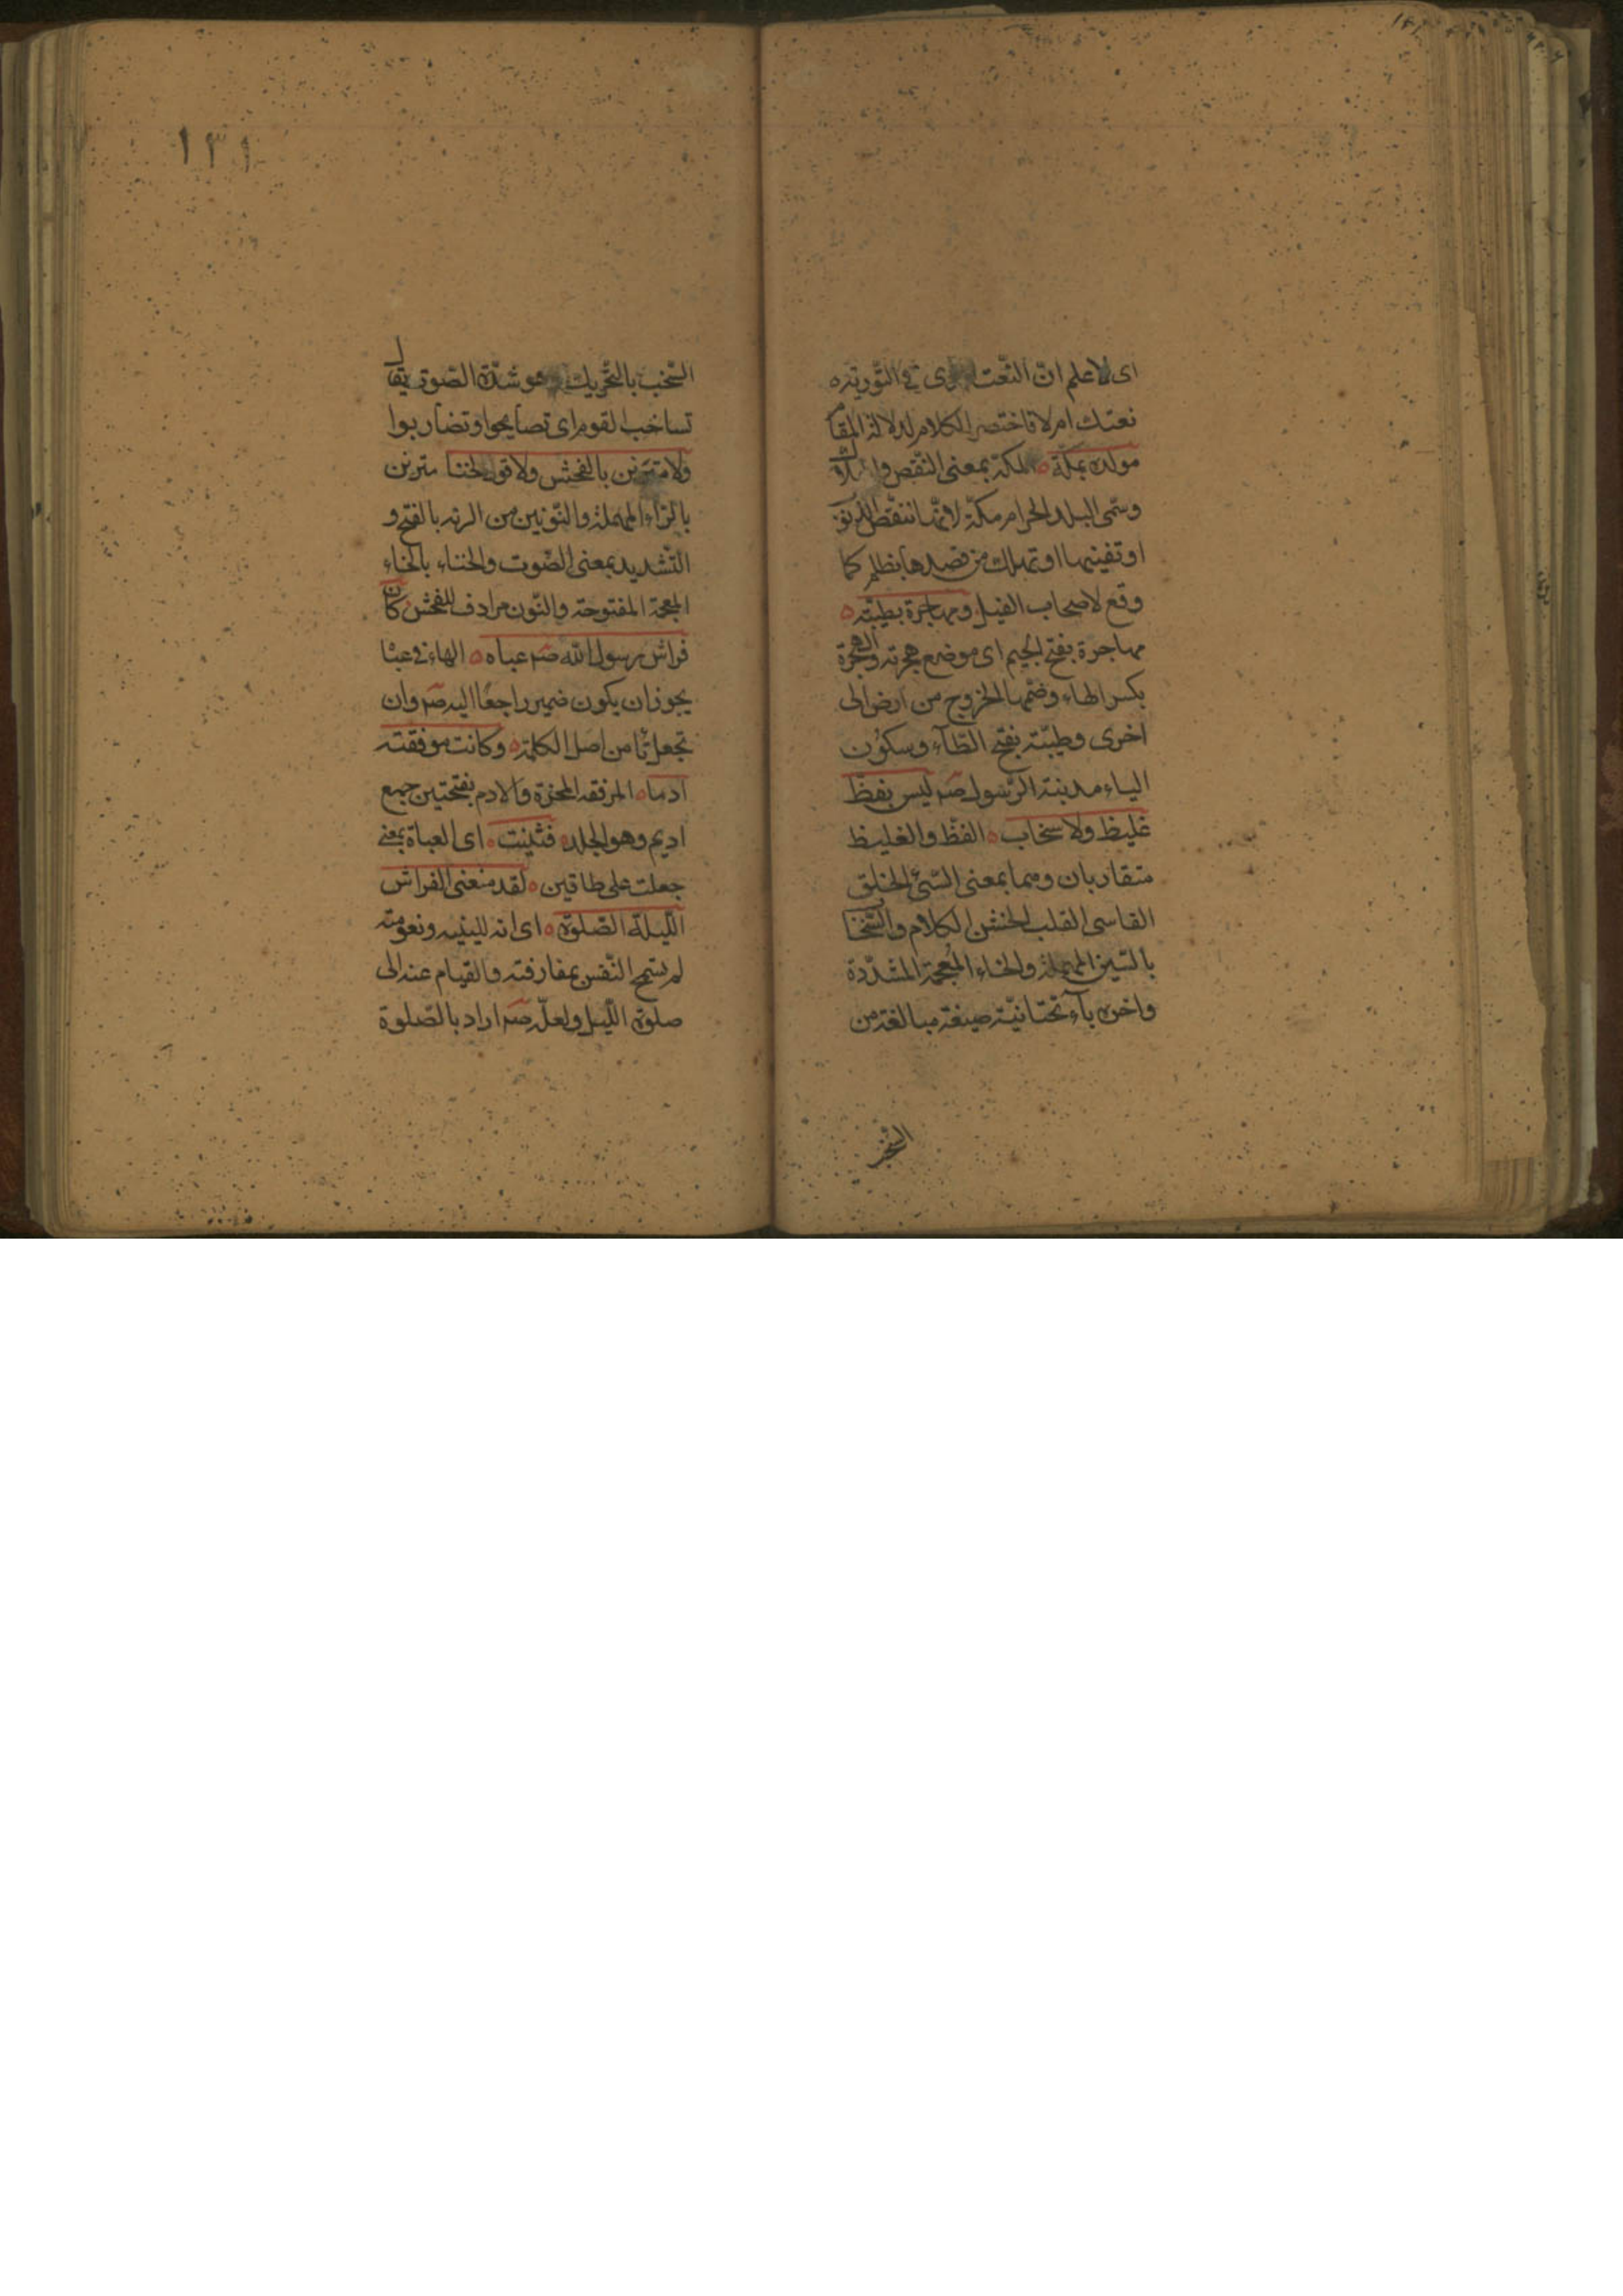 اى لاعلم انّ النّعت الّذى فى التّوريته
نعتك ام لا فاختصر الكلام لدلالة المقام
مولده بمكّة ه المكة بمعنى النّقص والهلاك
وسمّى البلد الحرام مكّة لانّها تنقص الذنوب
او تفنيها او تهلك من قصدها بظلم كما
وقع لاصحاب الفيل ومهاجرة بطيبته ه
مهاجرة بفتح الجيم اى موضع هجرته والهجرة
بكسر الهاء وضمّها الخروج من ارض الى
اخرى وطيّبته بفتح الطّآء وسكون
الياء مدينة الرّسول صم ليس بفظّ
غليظ ولا سخاب ه الفظّ والغليظ
متقاربان وهما بمعنى السّيئ الخلق
القاسى القلب الخشن الكلام والسّخاب
بالسّين المهملة والخاء المعجمة المشدّدة
واخره بآء تحتانيّة صيغة مبالغة من
السّخب
١٣١
السّخب بالتّحريك وهو شدّة الصّوت يقال
تساخب القوم اى تصايحوا وتضاربوا
ولا مترنن بالفحش ولا قول الخنا مترنن
بالرّاء المهملة والنّونين من الرنه بالفتح و
التّشديد بمعنى الصّوت والخناء بالخاء
المعجمة المفتوحة والنّون مرادف للفحش كان
فراش رسول الله صم عباه ه الهاء فى عبا
يجوز ان يكون ضمير راجعًا اليه صم وان
تجعل تًا من اصل الكلمة ه وكانت موفقته
ادما ه المرفقه المخزة والادم بفتحتين جمع
اديم وهو الجلد ه فثنيت ه اى العباة بمعنى
جعلت على طاقين ه لقد منعنى الفراش
اللّيلة الصّلوة ه اى انه للينيه ونعومته
لم يسمح النّفس بمفارقته والقيام عنه الى
صلوة اللّيل ولعلّه صم اراد بالصّلوة